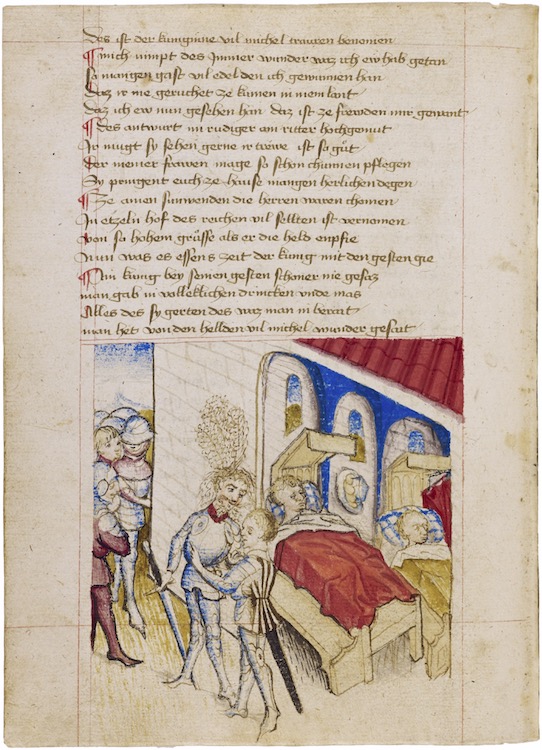 Des ist der kunginne vil michel trauren benomen
¶ Mich nimpt des Immer wunder waz ich ew hab getan
So mangen gast vil edel den ich gewunnen han
Daz ir nie geruchet ze kumen in mein lant
daz ich ew nun gesehen han daz ist ze frewden mir gewant
¶ Des antwurt im rudiger ain ritter hochgemut
Ir mugt sy sehen gerne ir trewe ist so gůt
Der meiner frawen mage so schon chunnen pflegen
Sy pringent euch ze hause mangen herlichen degen
¶ Ze ainen sunwenden die herren waren chomen
In etzeln hof des reichen vil sellten ist vernomen
von so hohem grůsse als er die held enpfie
Nun was es essens zeit der kunig mit den gesten gie
¶ Ain kunig bey seinen gesten schoner nie gesaz
man gab in volleklichen drincken unde mas
Alles des sy gerten des waz man in berait
man het von den hellden vil michel wunder gesait